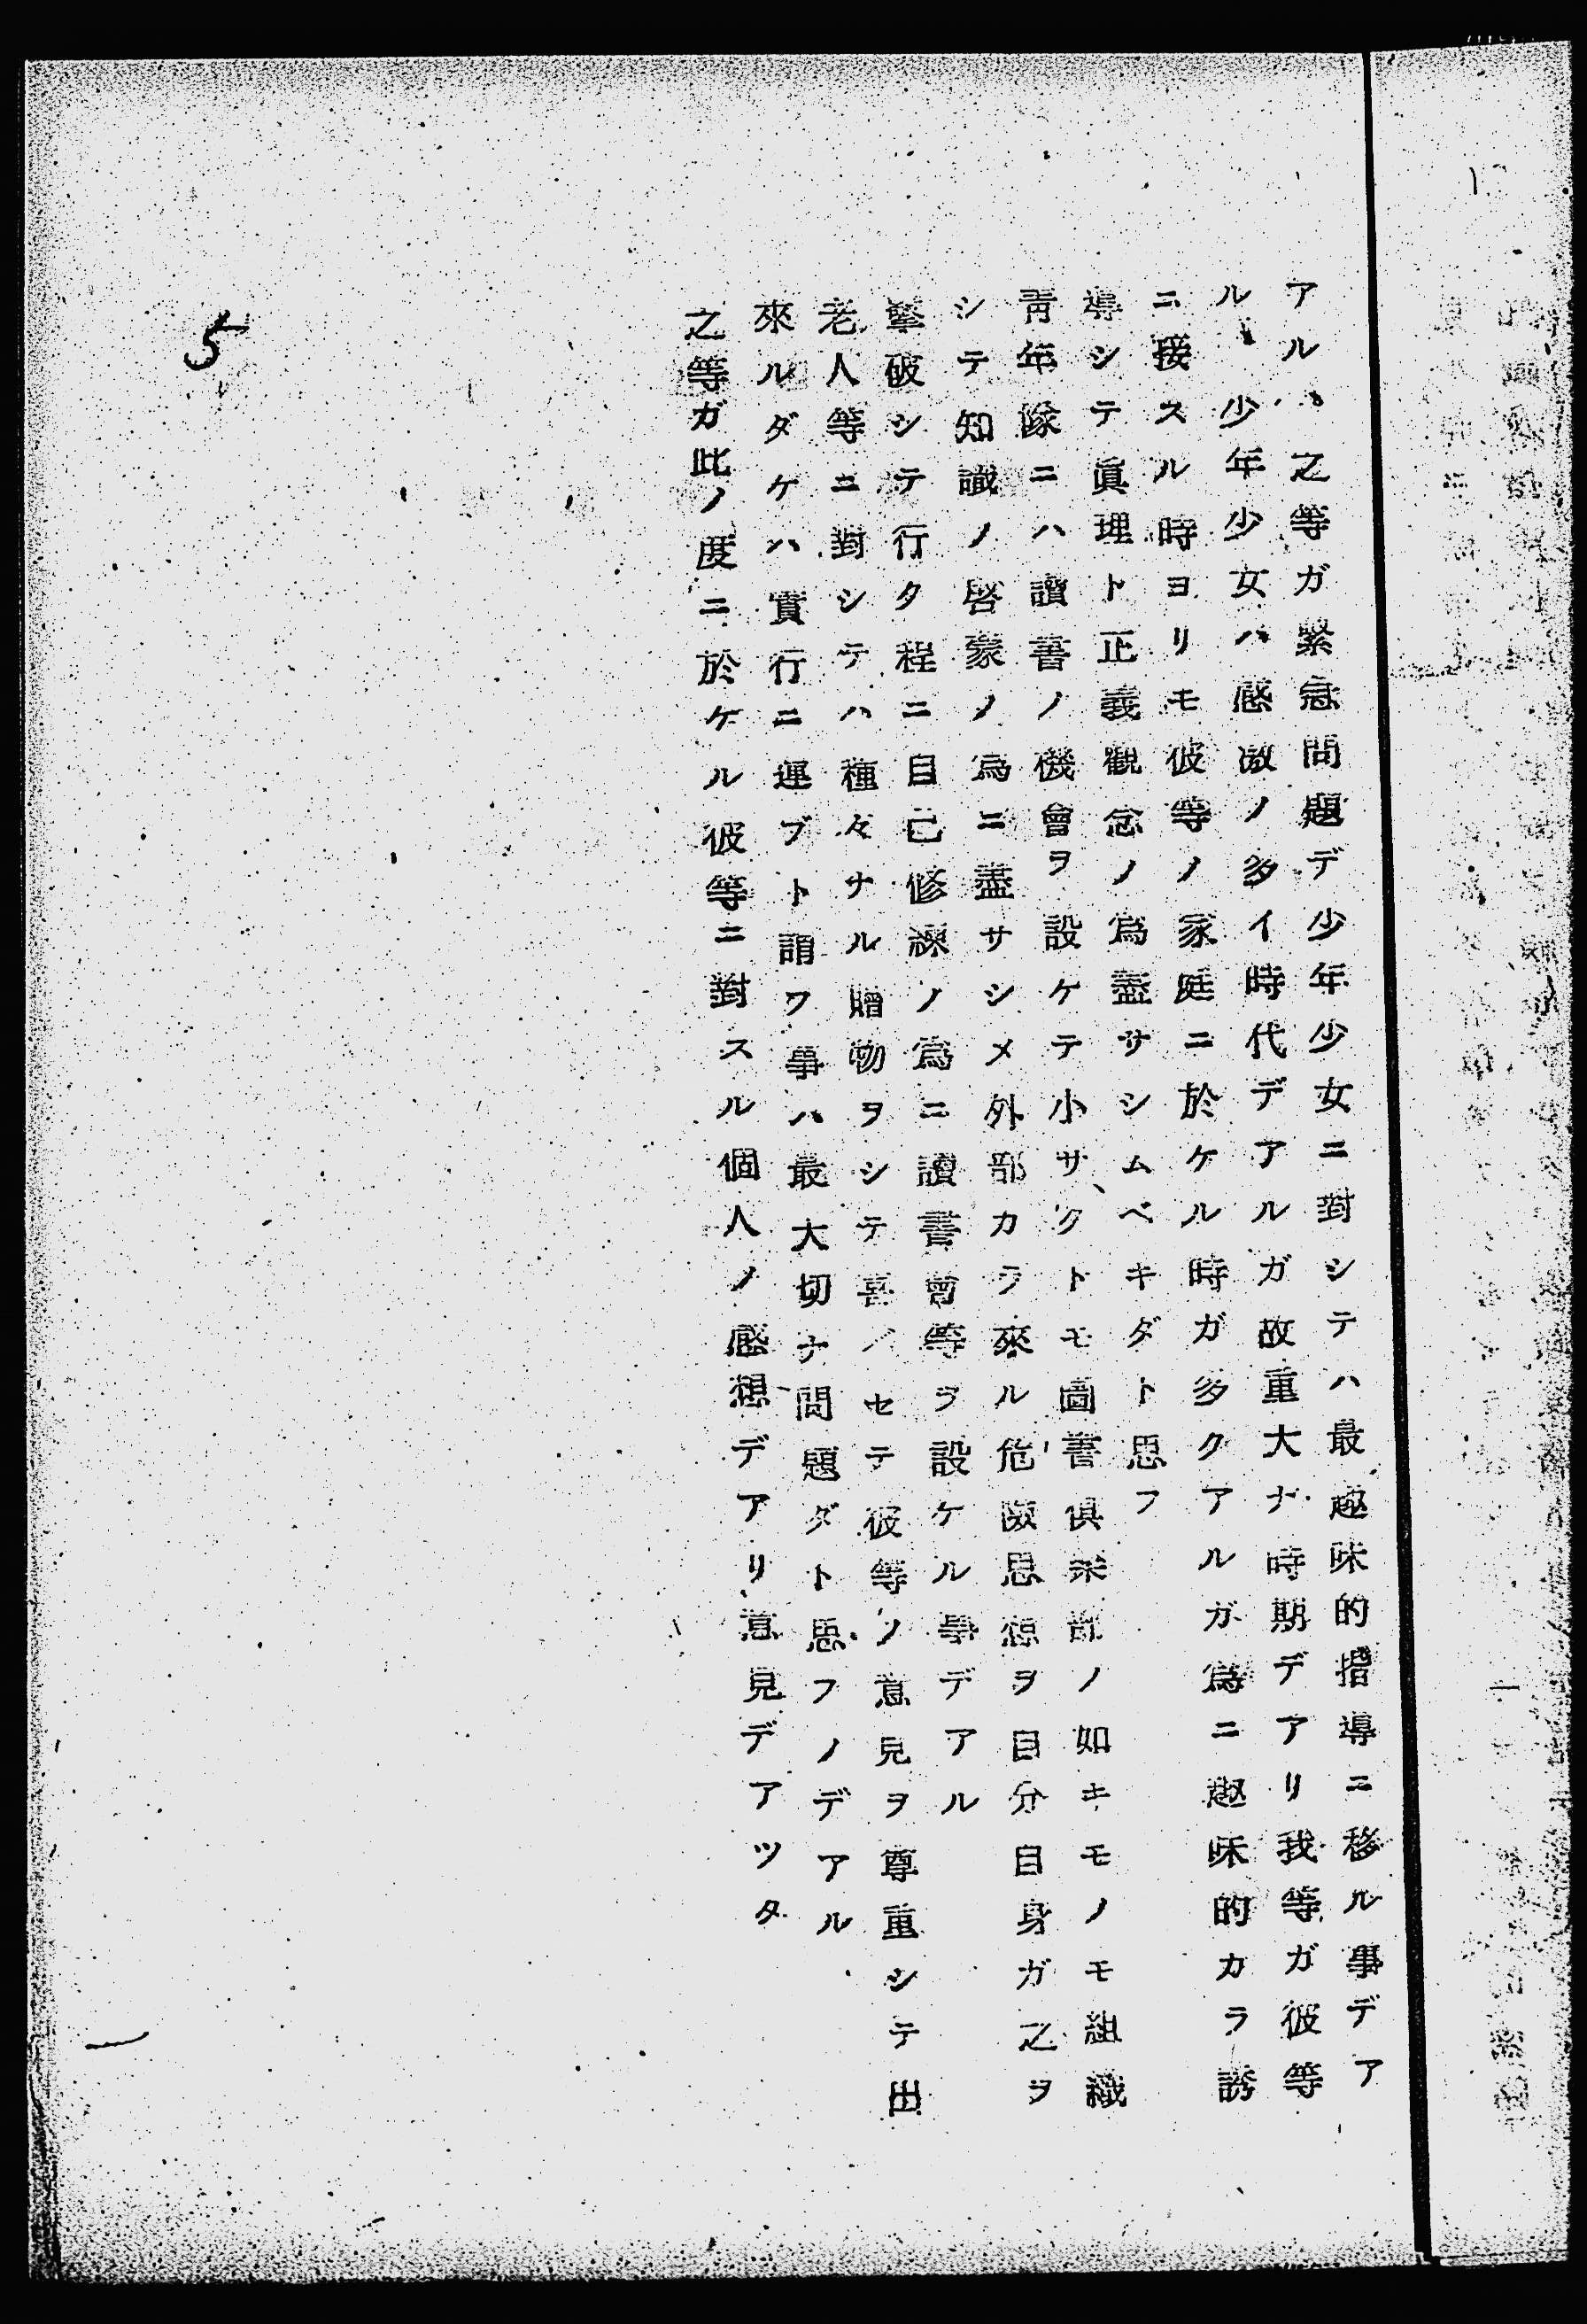 アル、之等ガ緊急問題デ少年少女ニ對シテハ最趣味的指導ニ移ル事デア
ル、少年少女ハ感激ノ多イ時代デアルガ故重大ナ時期デアリ我等ガ彼等
ニ接スル時ヨリモ彼等ノ家庭ニ於ケル時ガ多クアルガ為ニ趣味的カラ誘
導シテ眞理ト正義觀念ノ為盡サシムベキダト思フ
青年隊ニハ讀書ノ機會ヲ設ケテ小サクトモ圖書倶楽部ノ如キモノモ組織
シテ知識ノ啓蒙ノ為ニ盡サシメ外部カラ來ル危險思想ヲ自分自身ガ之ヲ
撃破シテ行タ程ニ自己修練ノ為ニ讀書會等ヲ設ケル事デアル
老人等ニ對シテハ種々ナル贈物ヲシテ喜ハセテ彼等ノ意見ヲ尊重シテ出
來ルダケハ實行ニ運ブト謂ワ事ハ最大切ナ問題ダト思フノデアル
之等ガ此ノ度ニ於ケル彼等ニ對スル個人ノ感想デアリ意見デアツタ
5